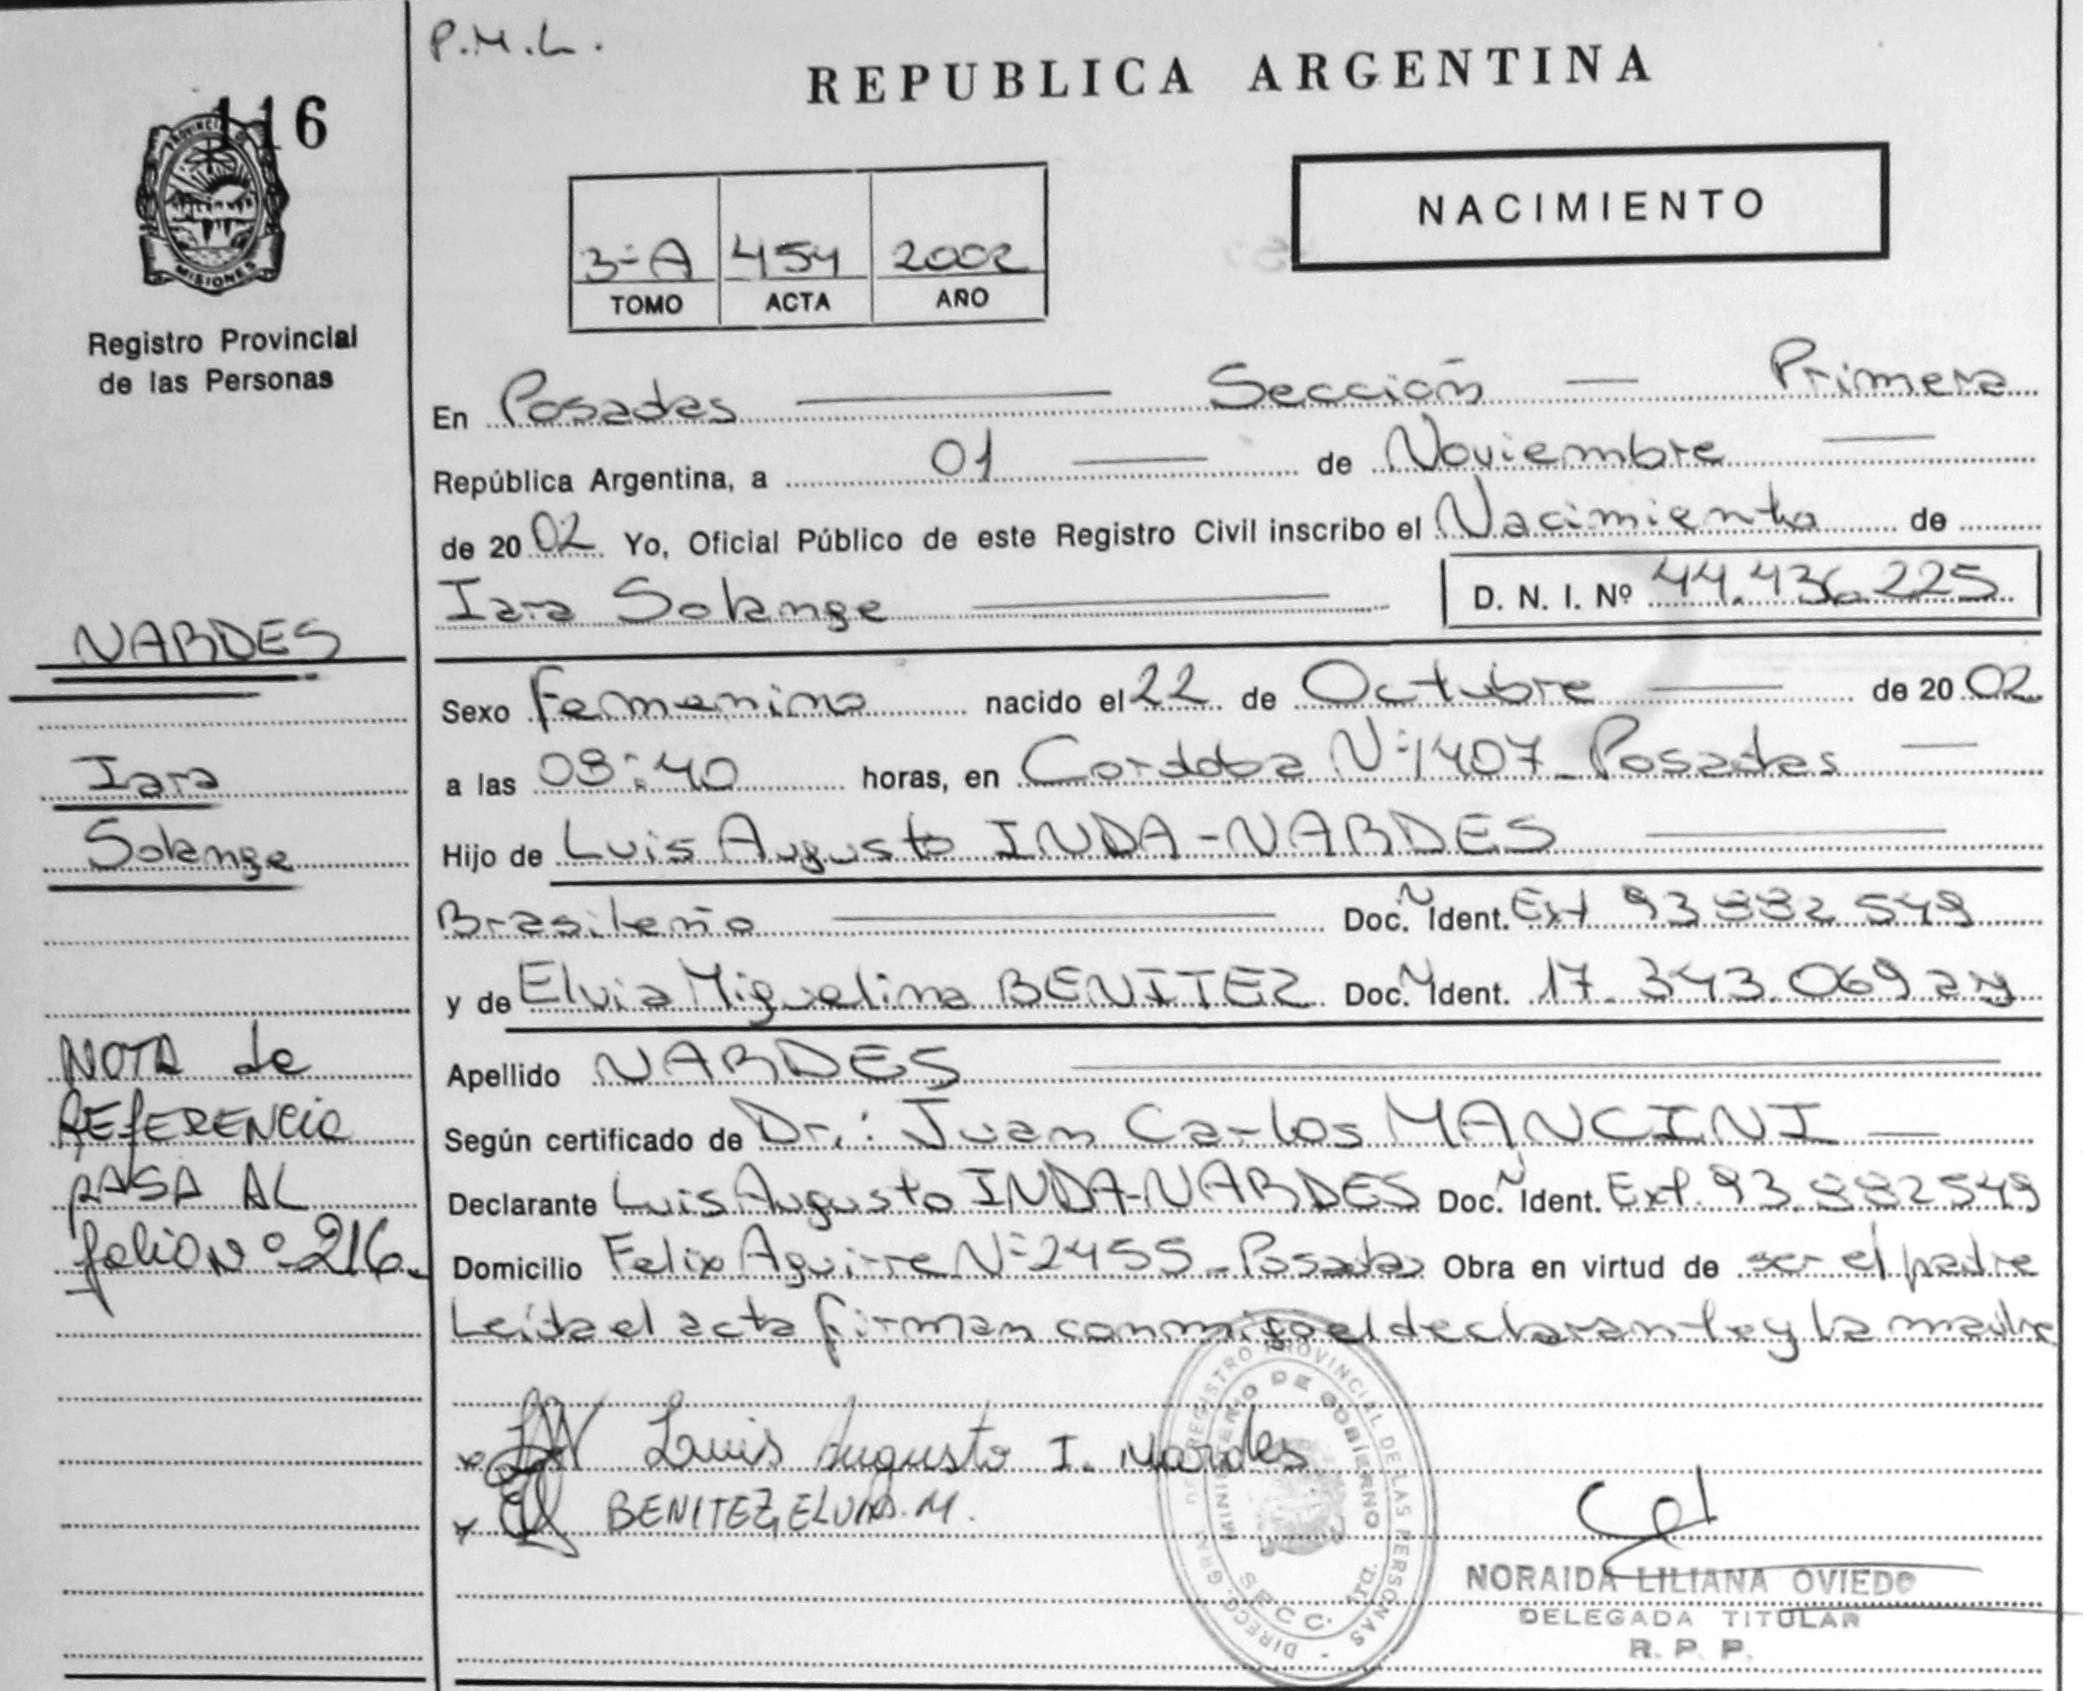 P.M.L.
REPUBLICA ARGENTINA
116
PROVINCIA DE
MISIONES
Registro Provincial
de las Personas
NACIMIENTO
3-A 454 2002
TOMO ACTA AÑO
En Posadas Sección Primera
República Argentina, a 01 de Noviembre
de 2002 Yo, Oficial Público de este Registro Civil inscribo el Nacimiento de
Iara Solange D. N. I. Nº 44.436.225
NARDES
Iara
Solange
Sexo Femenino nacido el 22 de Octubre de 2002
a las 08:40 horas, en Cordoba Nº 1407 - Posadas
Hijo de Luis Augusto INDA-NARDES
Brasileño Doc. N Ident. Ext 93.882.549
y de Elvia Miguelina BENITEZ Doc. N Ident. 17.343.069
Apellido NARDES
Según certificado de Dr.: Juan Carlos MANCINI
Declarante Luis Augusto INDA-NARDES Doc. N Ident. Ext. 93.882549
Domicilio Felix Aguirre Nº 2455 - Posadas Obra en virtud de ser el padre
Leida el acta firman conmigo el declarante y la madre
NOTA de
REFERENCIA
PASA AL
folio Nº 216.
x Luis Augusto I. Nardes
x BENITEZ, ELVIA. M.
DIRECC. GRAL. DE REGISTRO PROVINCIAL DE LAS PERSONAS
MINISTERIO DE GOBIERNO
SECC.
NORAIDA LILIANA OVIEDO
DELEGADA TITULAR
R. P. P.